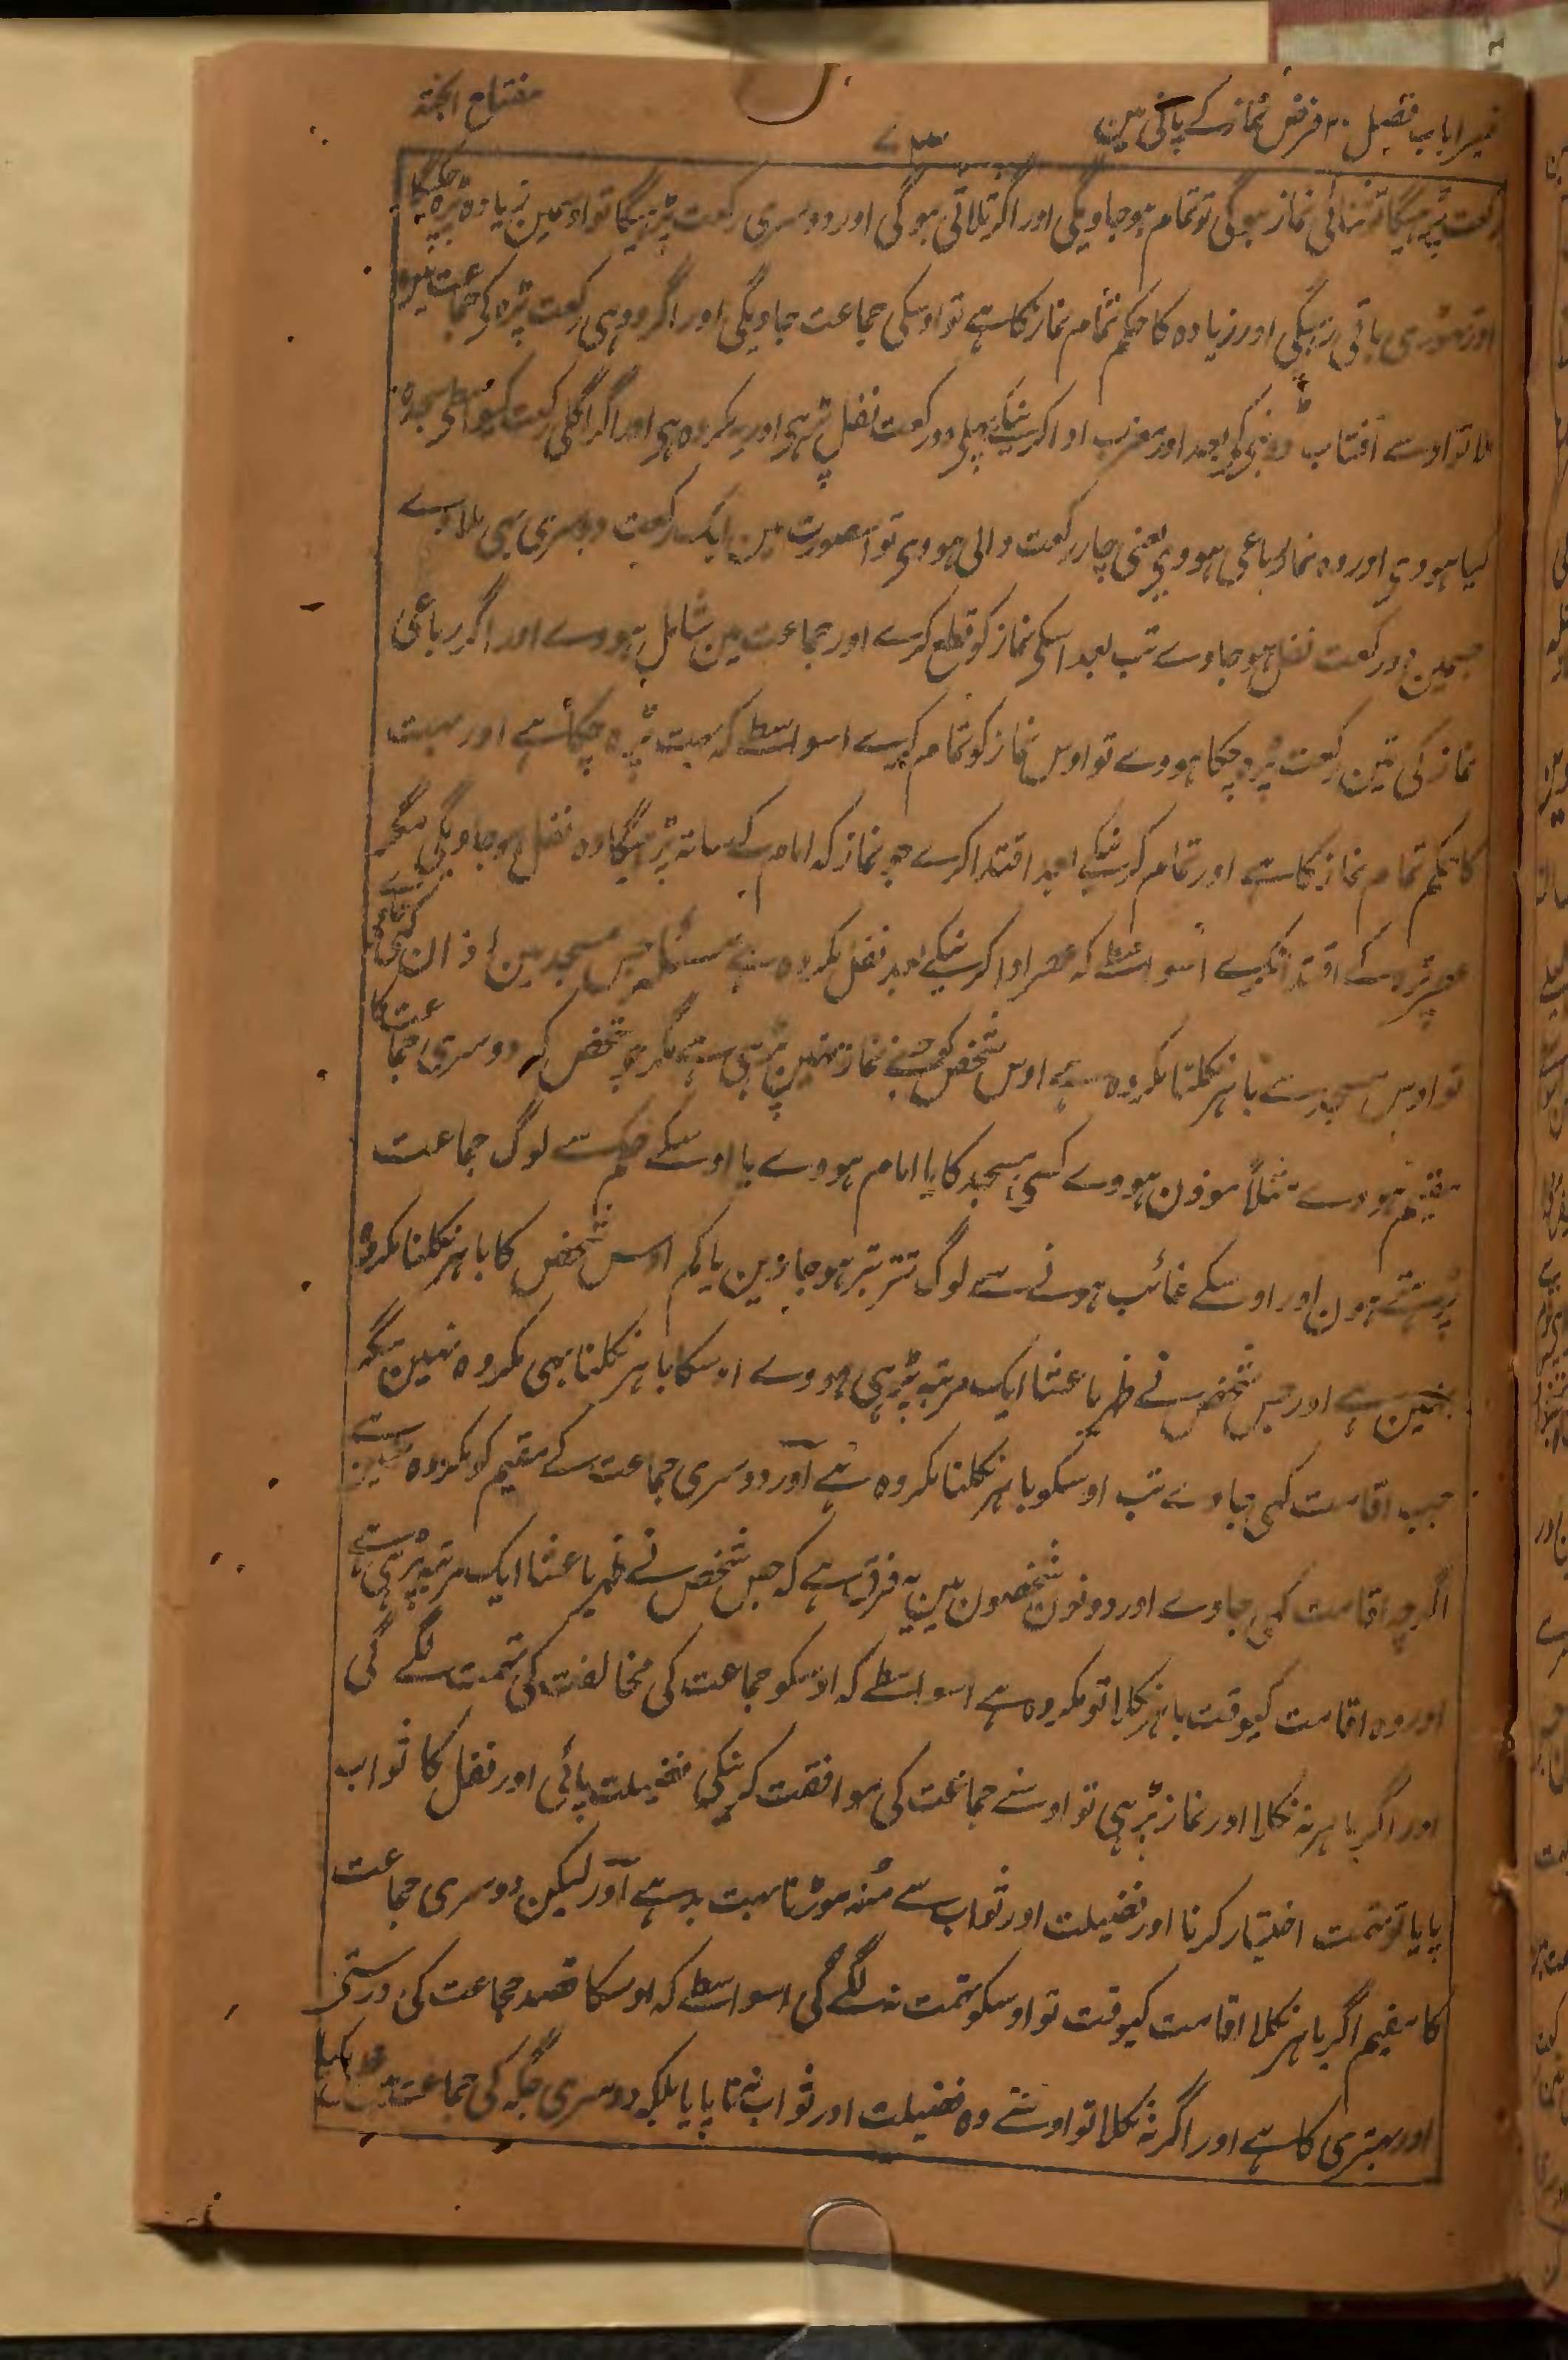 تیسرا باب فصیل ۲۰ فرض نماز کے پانی مین
۷۳
مفتاح الجنۃ
رکعت پڑہیگا تو ثنائی نماز ہوگی تو تمام ہوجاویگی اور اگر ثلاثی ہوگی اور دوسری رکعت پڑہیگا تو اوسمین زیادہ پڑہ چکیگا
اور تہوڑی باقی رہیگی اور زیادہ کا حکم تمام نماز کا ہے تو اوسکی جماعت جاویگی اور اگر دو ہی رکعت پڑہ کر جماعت مین
ملا تو اوسے آفتاب ڈوبنی کی بعد اور مغرب ادا کرنیکی پہلی دو رکعت نفل پڑہی اور یہ مکروہ ہی اور اگر اگلی رکعت کیواسطی سجدہ
کیا ہووی اور وہ نماز رباعی ہووی یعنی چار رکعت والی ہووی تو اسصورت مین ایک رکعت دوسری بہی ملاوے
جسمین دو رکعت نفل ہوجاوے تب بعد اسکی نماز کو قطع کرے اور جماعت مین شامل ہووے اور اگر رباعی
نماز کی تین رکعت پڑہ چکا ہووے تو اوس نماز کو تمام کرے اسواسطے کہ بہت پڑہ چکا ہے اور بہت
کا حکم تمام نماز کا ہے اور تمام کرنیکے بعد اقتدا کرے جو نماز کہ امام کے ساتہ پڑہیگا وہ نفل ہوجاویگی مگر
عصر پڑہ کے اقتدا نکرے اسواسطے کہ عصر ادا کرنیکے بعد نفل مکروہ ہے مسئلہ جس مسجد مین اذان کہی گئی ہے
تو اوس مسجد سے باہر نکلنا مکروہ ہے اوس شخص کو جسنے نماز نہین پڑہی ہے مگر جو شخص کہ دوسری جماعت کا
مقیم ہووے مثلاً موذن ہووے کسی مسجد کا یا امام ہووے یا اوسکے حکم سے لوگ جماعت
پڑہتے ہون اور اوسکے غائب ہونے سے لوگ تتر بتر ہوجاوین یا کم اوس شخص کا باہر نکلنا مکروہ
نہین ہے اور جس شخص نے ظہر یا عشا ایک مرتبہ پڑہی ہووے اوسکا باہر نکلنا بہی مکروہ نہین مگر
جب اقامت کہی جاوے تب اوسکو باہر نکلنا مکروہ ہے اور دوسری جماعت کے مقیم کو مکروہ نہین ہے
اگرچہ اقامت کہی جاوے اور دونون شخصون مین یہ فرق ہے کہ جس شخص نے ظہر یا عشا ایک مرتبہ پڑہی ہے
اور وہ اقامت کیوقت باہر نکلا تو مکروہ ہے اسواسطے کہ اوسکو جماعت کی مخالفت کی تہمت لگے گی
اور اگر باہر نہ نکلا اور نماز پڑہی تو اوسنے جماعت کی موافقت کرنیکی فضیلت پائی اور نفل کا ثواب
پایا تو تہمت اختیار کرنا اور فضیلت اور ثواب سے مُنہ موڑنا بہت بد ہے اور لیکن دوسری جماعت
کا مقیم اگر باہر نکلا اقامت کیوقت تو اوسکو تہمت نہ لگے گی اسواسطے کہ اوسکا قصد جماعت کی درستی
اور بہتری کا ہے اور اگر نہ نکلا تو اوسنے وہ فضیلت اور ثواب نہ پایا بلکہ دوسری جگہ کی جماعت مین